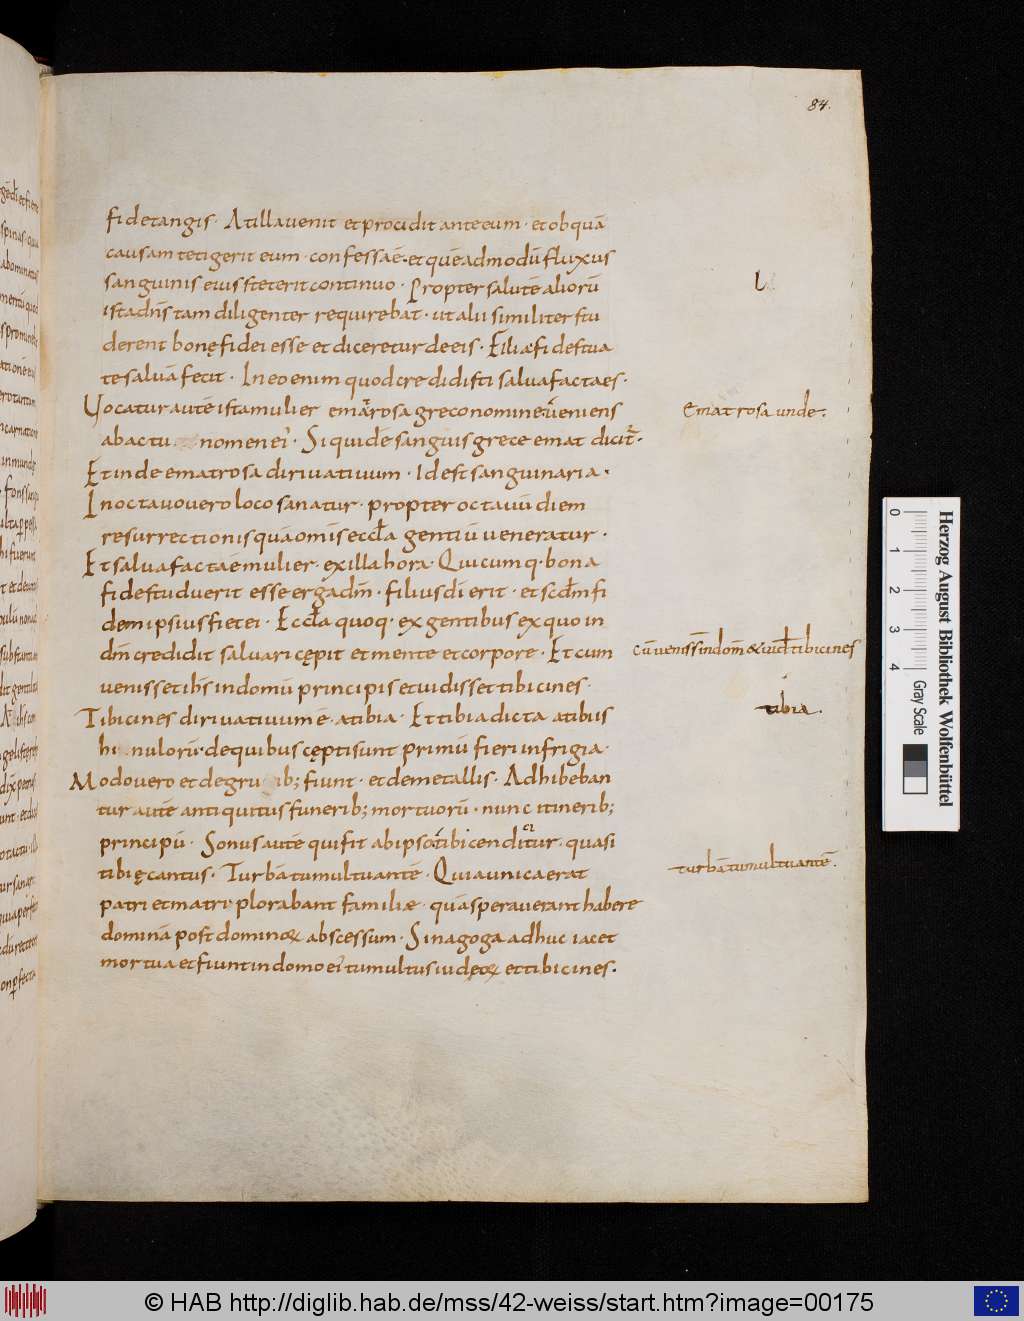 84.
fide tangis· At illa venit et procidit ante eum· et ob quā
causam tetigerit eum· confessa ē· et quēadmodū fluxus
sanguinis eius steterit continuo· Propter salutē aliorū
ista dn̄s tam diligenter requirebat· ut alii similiter stu
derent bonę fidei esse et diceretur de eis· Filiæ fides tua
te salvā fecit· In eo enim quod credidisti salva facta es·
Vocatur autē ista mulier ematrosa greco nomine veniens
ab actu nomen ei· Siquidē sanguis grece emat dicit·
Et inde ematrosa dirivativum· Id est sanguinaria·
In octavo vero loco sanatur· propter octavū diem
resurrectionis quā om̄is eccła gentiū veneratur·
Et salva facta ē mulier· ex illa hora· Quicumq· bona
fide studuerit esse erga dm̄· filius di erit· et scdm fi
dem ipsius fiet ei· Eccła quoq· ex gentibus ex quo in
dm̄ credidit salvari cępit et mente et corpore· Et cum
venisset ihs in domū principis et vidisset tibicines·
Tibicines dirivativum ē· a tibia· Et tibia dicta a tibiis
hinnulorū· de quibus cępti sunt primū fieri in frigia·
Modo vero et de gruib; fiunt· et de metallis· Adhiban
tur autē antiquitus funerib; mortuorū· nunc itinerib;
principū· Sonus autē qui fit ab ipso tibicen dicitur· quasi
tibię cantus· Turbā tumultuantē· Quia unica erat
patri et matri· plorabant familiæ· quā speraverant habere
dominā post dominoꝝ abscessum· Sinagoga adhuc iacet
mortua et fiunt in domo ei tumultus iudeoꝝ et tibicines·
Ematrosa unde·
cū veniss in domū & vidt tibicines
tibia·
turbā tumultuantē·
0 1 2 3 4
Herzog August Bibliothek Wolfenbüttel
Gray Scale
© HAB http://diglib.hab.de/mss/42-weiss/start.htm?image=00175